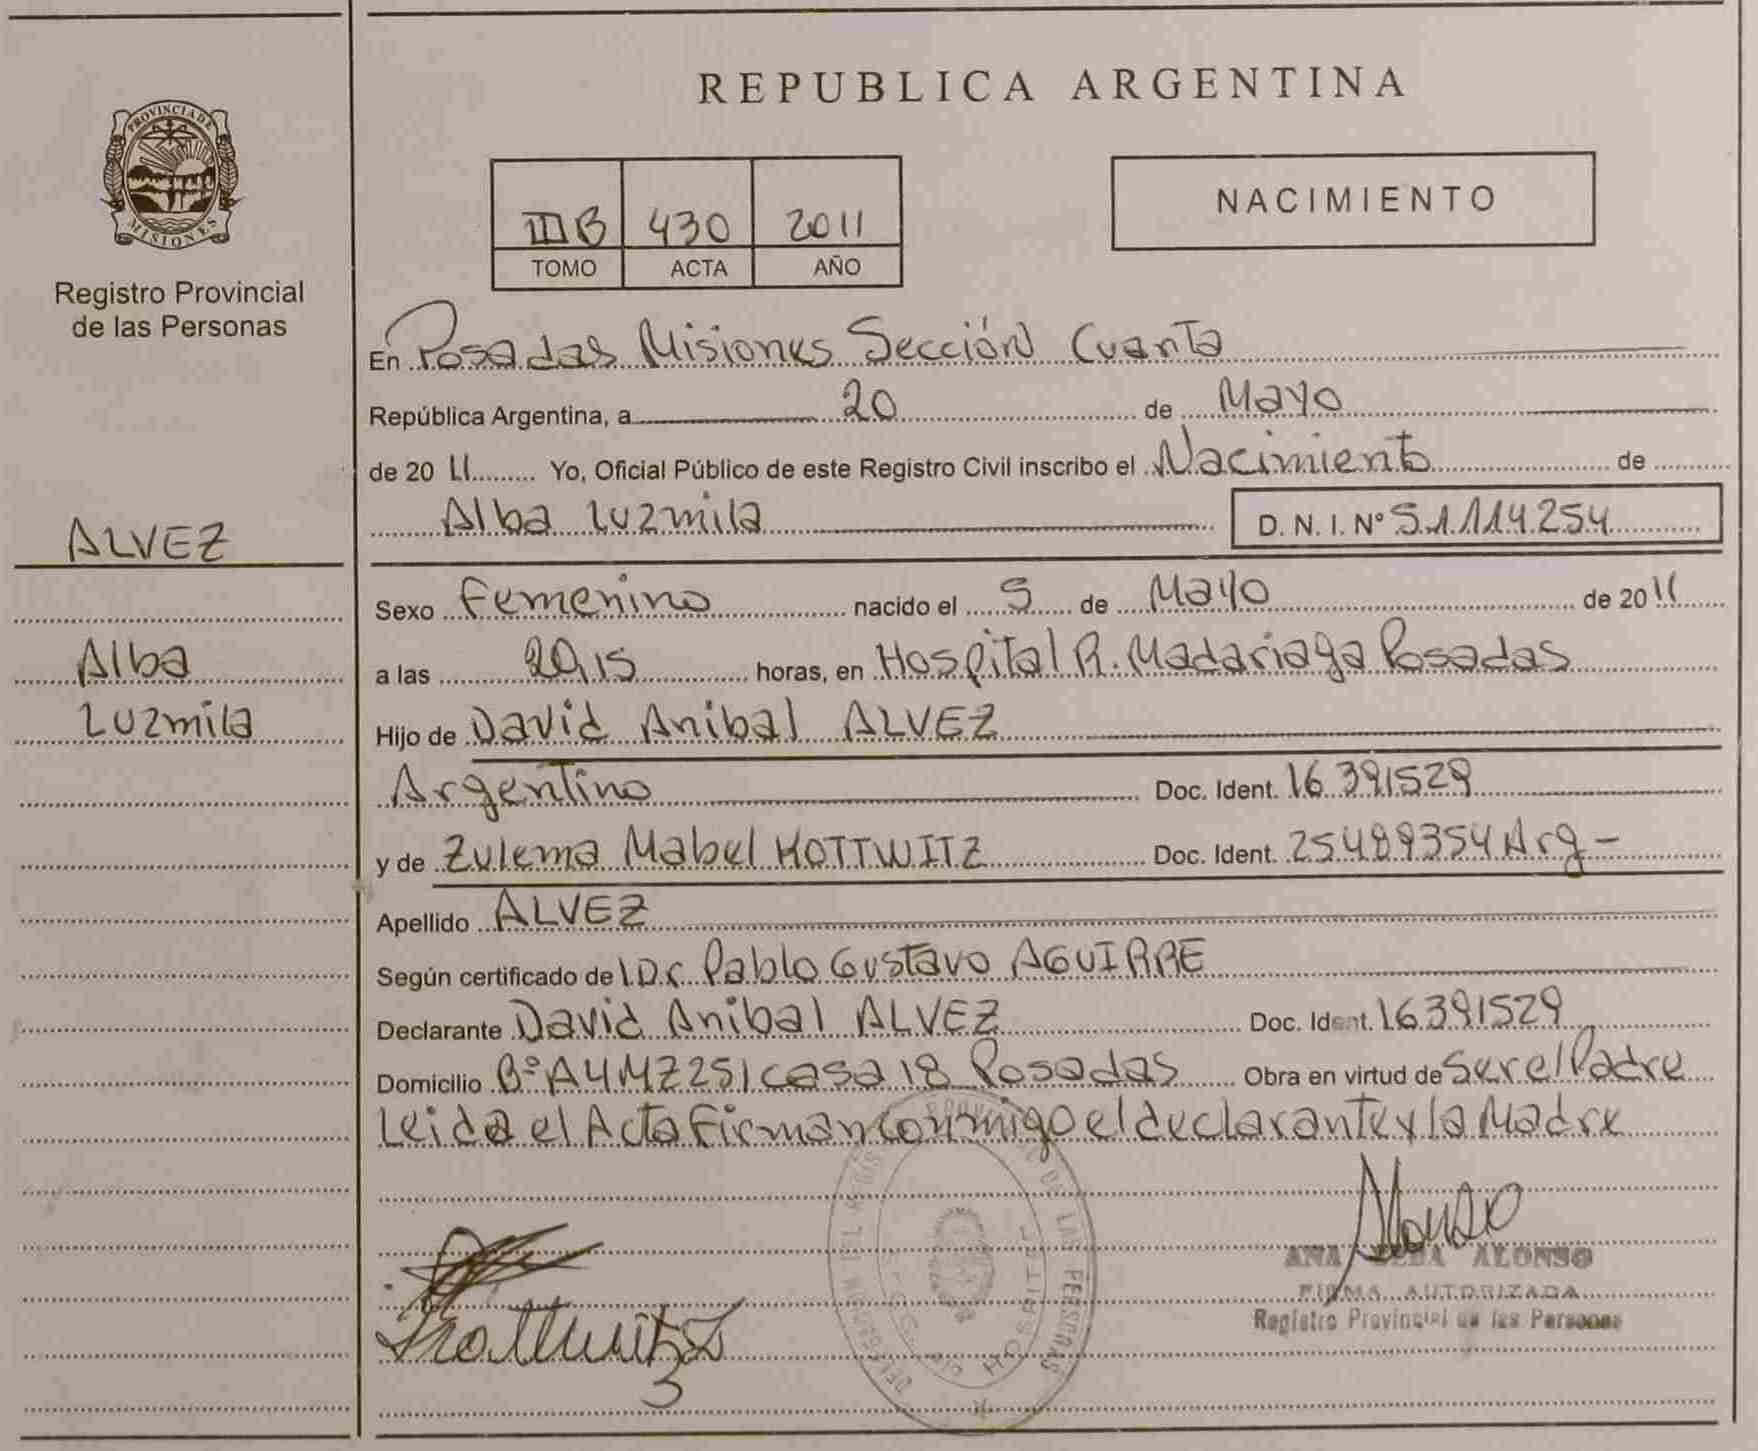 REPUBLICA ARGENTINA
PROVINCIA DE
MISIONES
Registro Provincial
de las Personas
ALVEZ
Alba
Luzmila
IIIB 430 2011
TOMO ACTA AÑO
NACIMIENTO
En Posadas Misiones Sección Cuarta
República Argentina, a 20 de Mayo
de 2011 Yo, Oficial Público de este Registro Civil inscribo el Nacimiento de
Alba Luzmila D. N. I. Nº 51.114.254
Sexo Femenino nacido el 5 de Mayo de 2011
a las 20,15 horas, en Hospital R. Madariaga Posadas
Hijo de David Anibal ALVEZ
Argentino Doc. Ident. 16391529
y de Zulema Mabel KOTTWITZ Doc. Ident. 25489354 Arg-
Apellido ALVEZ
Según certificado de l Dr Pablo Gustavo AGUIRRE
Declarante David Anibal ALVEZ Doc. Ident. 16391529
Domicilio Bº A4 MZ 251 casa 18 Posadas Obra en virtud de Ser el Padre
Leida el Acta Firman Conmigo el declarante y la Madre
Alonso
ANA ALONSO
FIRMA AUTORIZADA
Registro Provincial de las Personas
Kottwitz
LAS PERSONAS
HOSPITAL